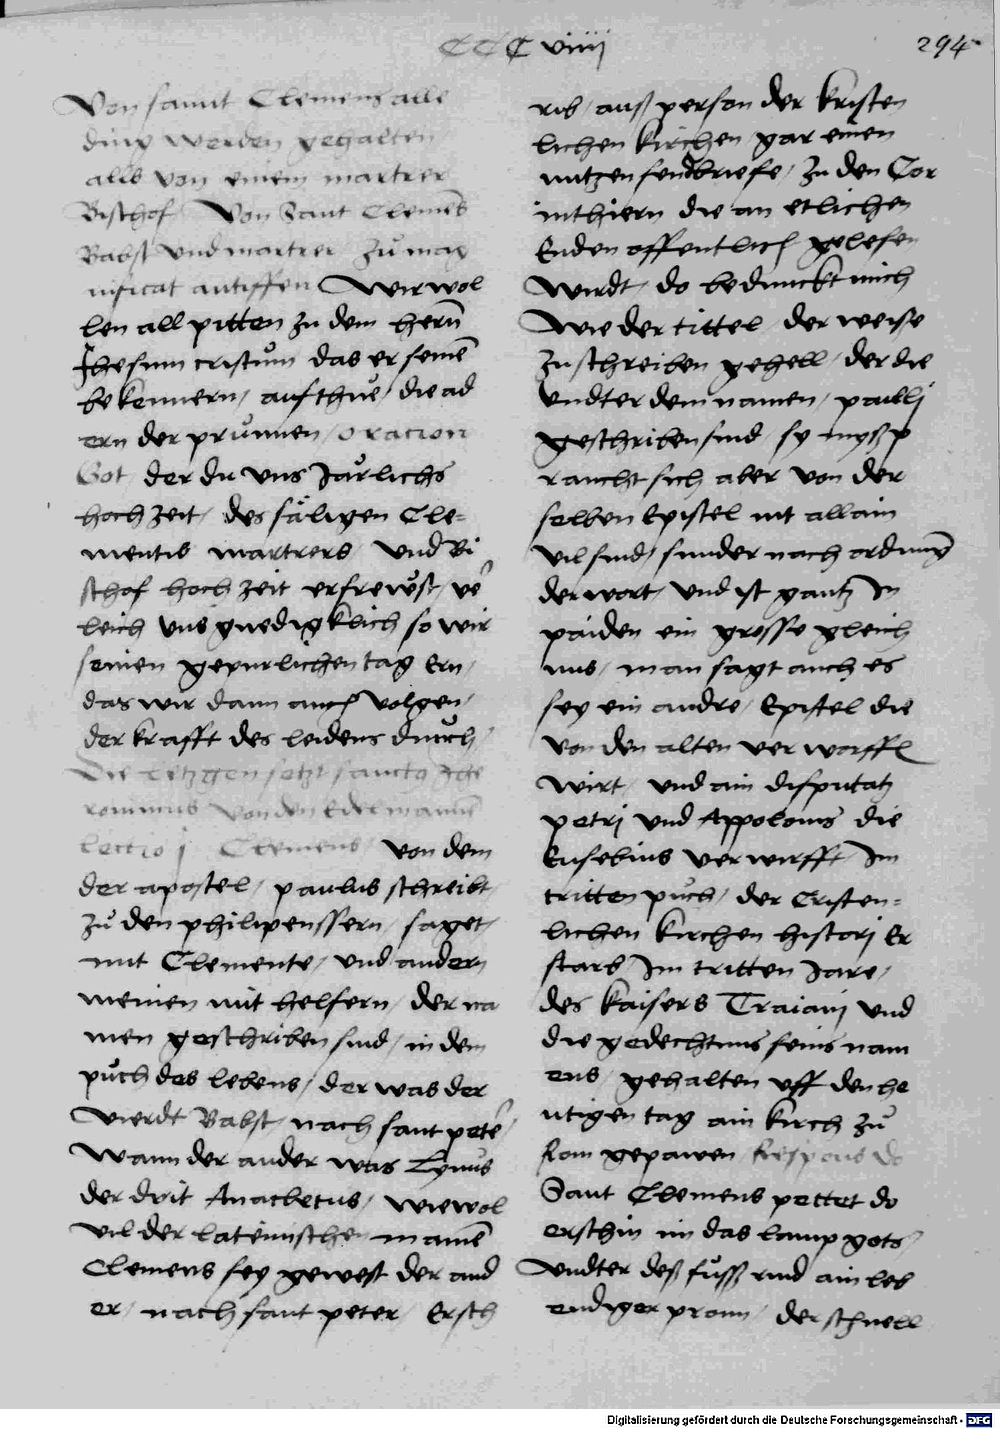 CCC viiij
294
Von sannt Clemens alle
ding werden gehalten
alls von einem martrer
Bischof Von Sant Clemēs
Babst vnd martrer zů mag
nificat antiffen Wir wol
len all pitten zu dem herñ
Jhesum cristum das er seinē
bekennern / aufthůe / die ad
ern der průnnen / Oracion
Got der du vns Jårlichs
hochzeit / des säligen Cle=
mentis martrers / vnd Bi
schof hochzeit erfrewst / v̄e
leich vns gnedigklich so wir
seinen gepurlichen tag Ern /
das wir dann auch volgen /
der krafft des leidens durch /
Die letzgen setzt sanctus Je
ronimus von den Edeln mannē
Lectio j Clemens / von dem
der apostel / paulus schreibt /
Zů den philipenssern / saget /
mit Clemente / vnd andern
meinen mit helfern / der na
men geschriben sind / in dem
půch des lebens / der was der
vierdt Babst / nach sant petē /
Wann der ander was Lynus
der drit Anacletus / wiewol
vil der lateinischen mainē
Clemens sey gewest der and
er / nach sant peter / Ersch
rib / auß person der kristen
lichen kirchen gar einen
nutzen sendbriefe / zu den Cor
inthiern die an etlichen
Enden offentlich gelesen
wirdt / do bedunckt mich
Wie der tittel / der weise
zu schreiben gehell / der die
vndter dem namen / paulli
geschriben sind / sy myßp
raucht sich aber von der
selben Epistel nit allain
vil sind / sunder nach ordnung
der wort / vnd ist gantz In
paiden ein grosse gleich
nus / man sagt auch es
sey ein andre / Epistel die
von den alten verworffen
wirt / vnd ain disputatz
petrj vnd Appolonis die
Eusebius verwirfft / Im
tritten půch / der Cristen=
lichen kirchen historj Er
starb / Im tritten Jare /
des kaisers Traianj vnd
die gedechtnus seins nam
ens / gehalten vff den he
utigen tag ain kirch zů
Rom gepawen Respons Do
Sant Clemens pettet do
erschin im das lamp gots
vndter deß fůsß rind ain leb
endiger pronn / der schnell
Digitalisierung gefördert durch die Deutsche Forschungsgemeinschaft - DFG